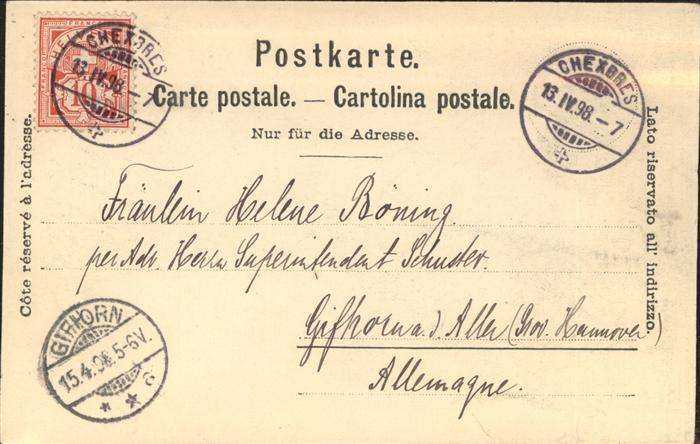 HELVETIA
FRANCO
10
CHEXBRES
13.IV.98.–7
Postkarte.
Carte postale. — Cartolina postale.
Nur für die Adresse.
CHEXBRES
13.IV.98.–7
Côté réservé à l'adresse.
Lato riservato all' indirizzo.
Fräulein Helene Böning
per Adr. Herrn Superintendent Schuster.
Gifhorn a. d. Aller (Prov. Hannover)
Allemagne.
GIFHORN
15.4.98.5-6V.
* * c